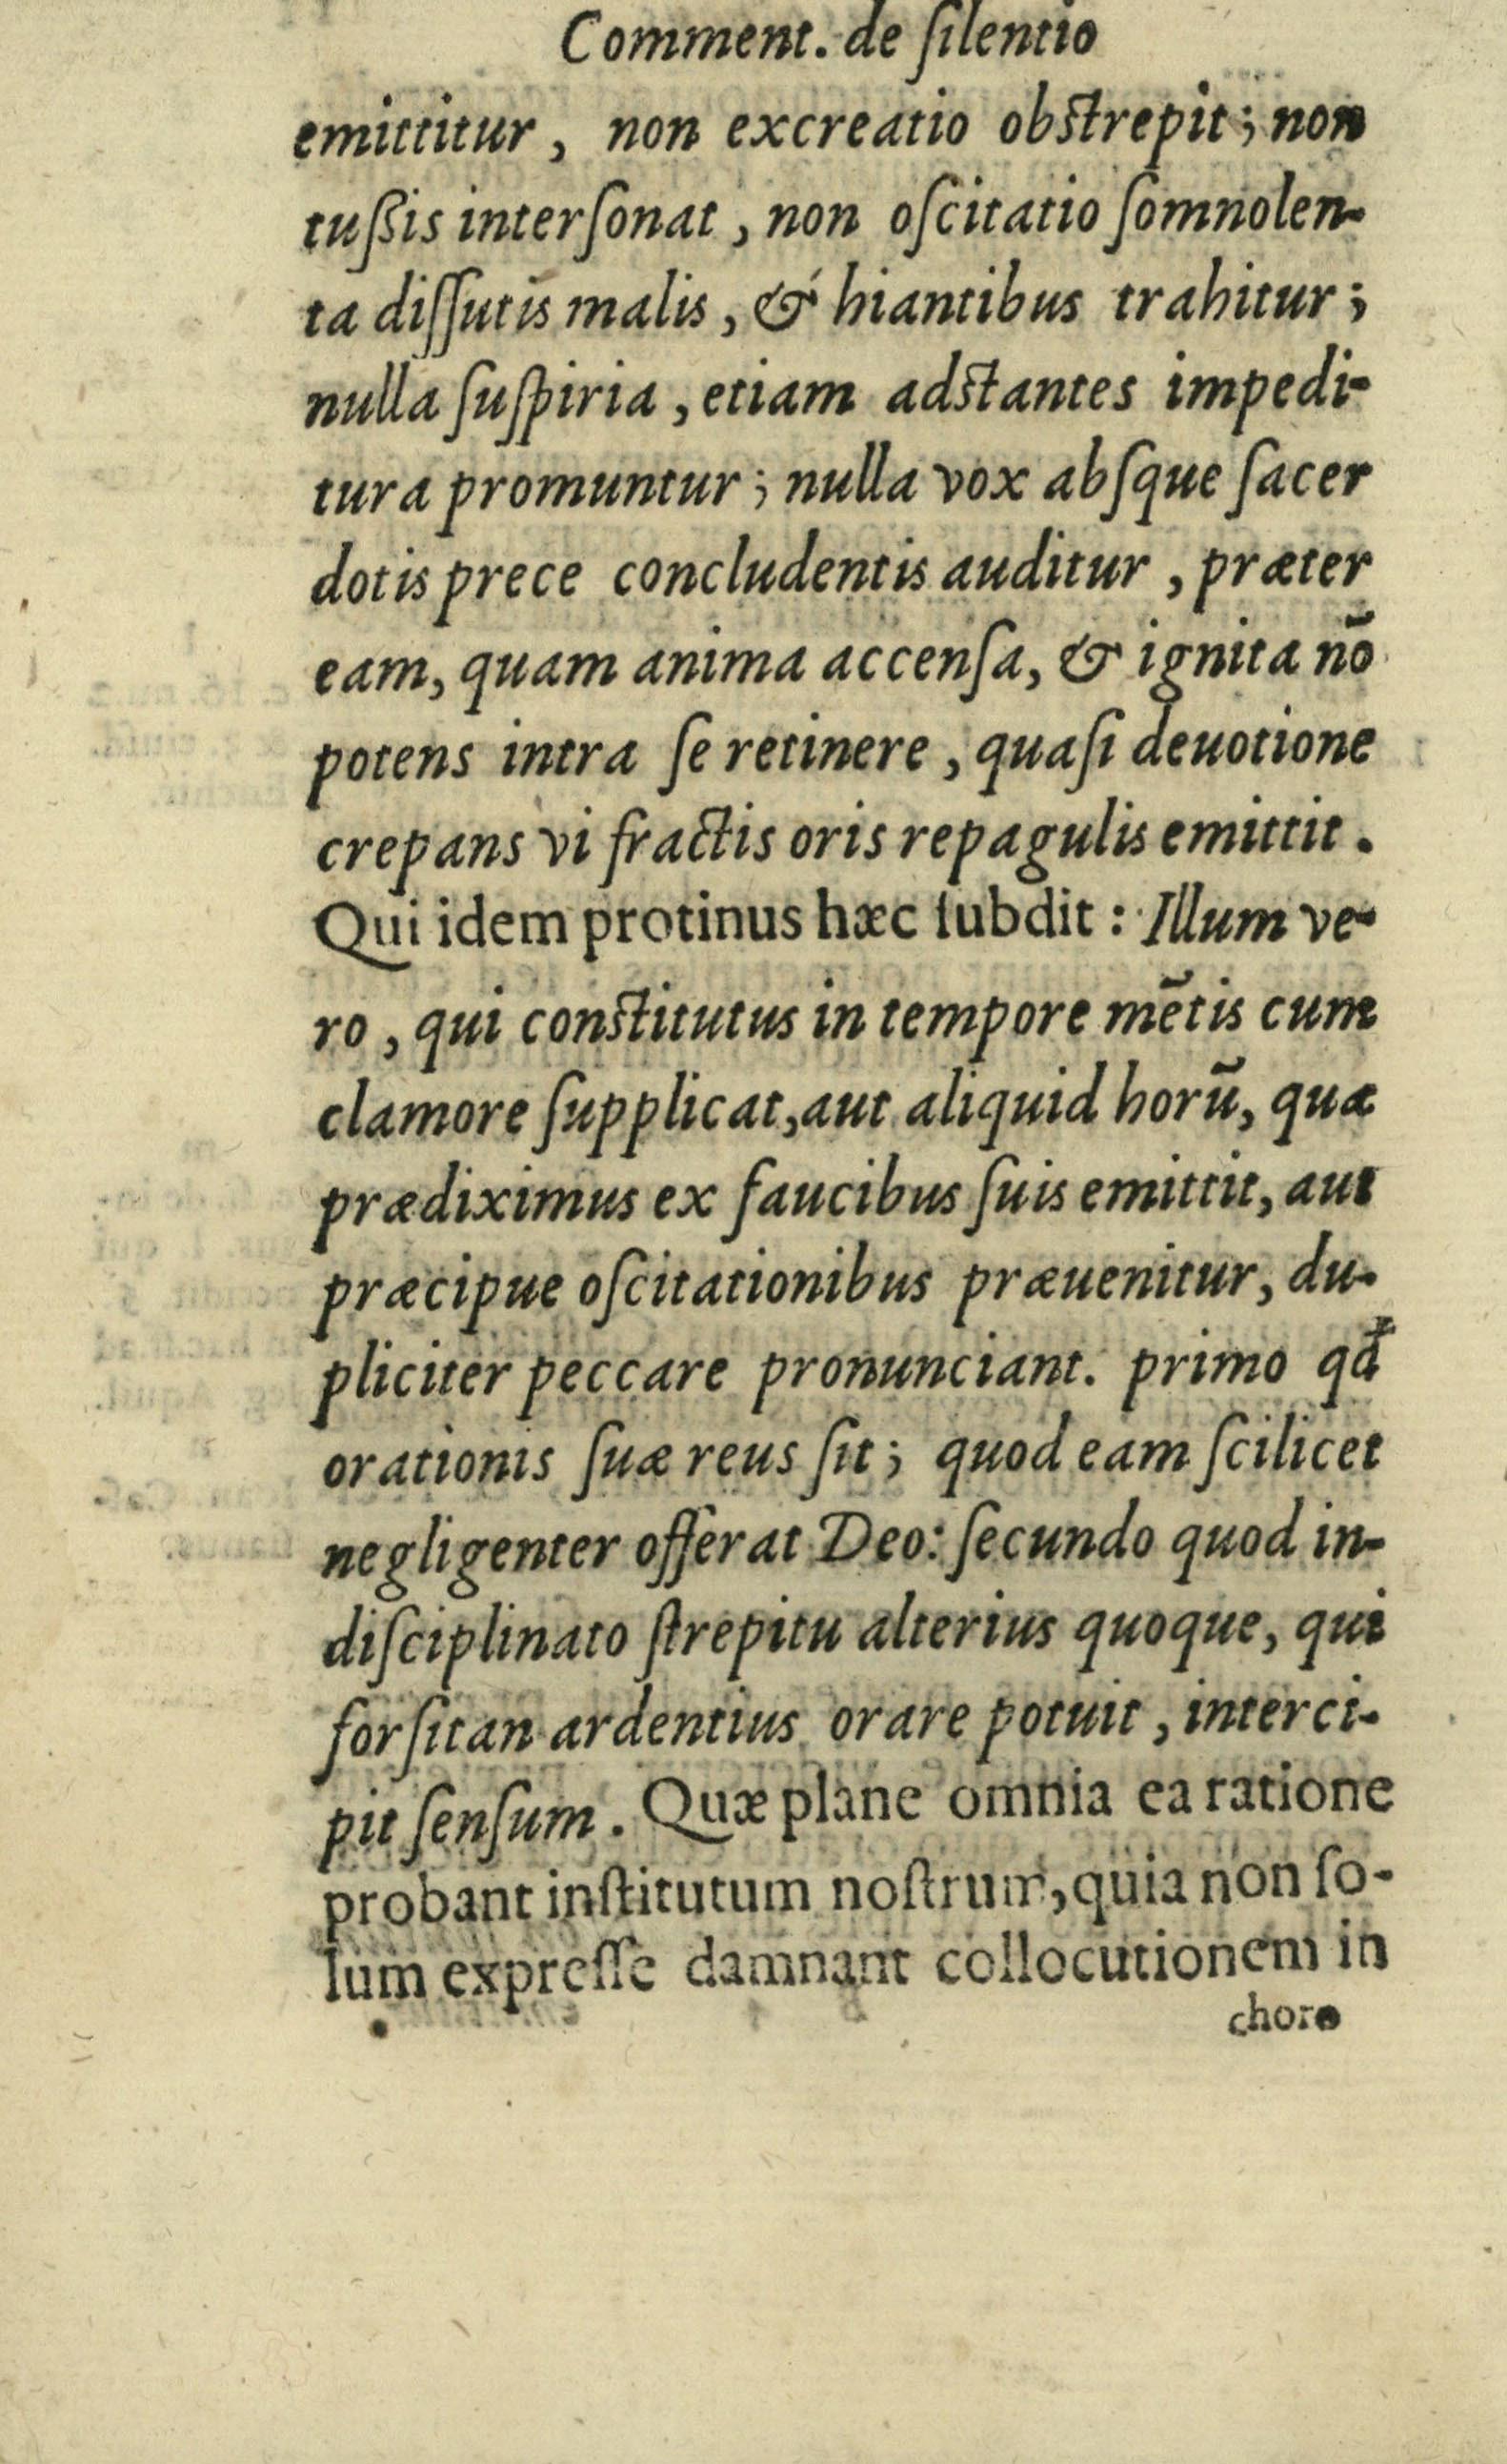 Comment. de ſilentio
emittitur, non excreatio obſtrepit; non
tuſsis interſonat, non oſcitatio ſomnolen-
ta diſſutis malis, & hiantibus trahitur;
nulla ſuſpiria, etiam adſtantes impedi-
tura promuntur; nulla vox abſque ſacer
dotis prece concludentis auditur, præter
eam, quam anima accenſa, & ignita nō
potens intra ſe retinere, quaſi deuotione
crepans vi fractis oris repagulis emittit.
Qui idem protinus hæc ſubdit: Illum ve-
ro, qui conſtitutus in tempore mētis cum
clamore ſupplicat, aut aliquid horū, quæ
prædiximus ex faucibus ſuis emittit, aut
præcipue oſcitationibus præuenitur, du-
pliciter peccare pronunciant. primo qđ
orationis ſuæ reus ſit; quod eam ſcilicet
negligenter offerat Deo: ſecundo quod in-
diſciplinato ſtrepitu alterius quoque, qui
forſitan ardentius orare potuit, interci-
pit ſenſum. Quæ plane omnia ea ratione
probant inſtitutum noſtrum, quia non ſo-
lum expreſſe damnant collocutionem in
choro